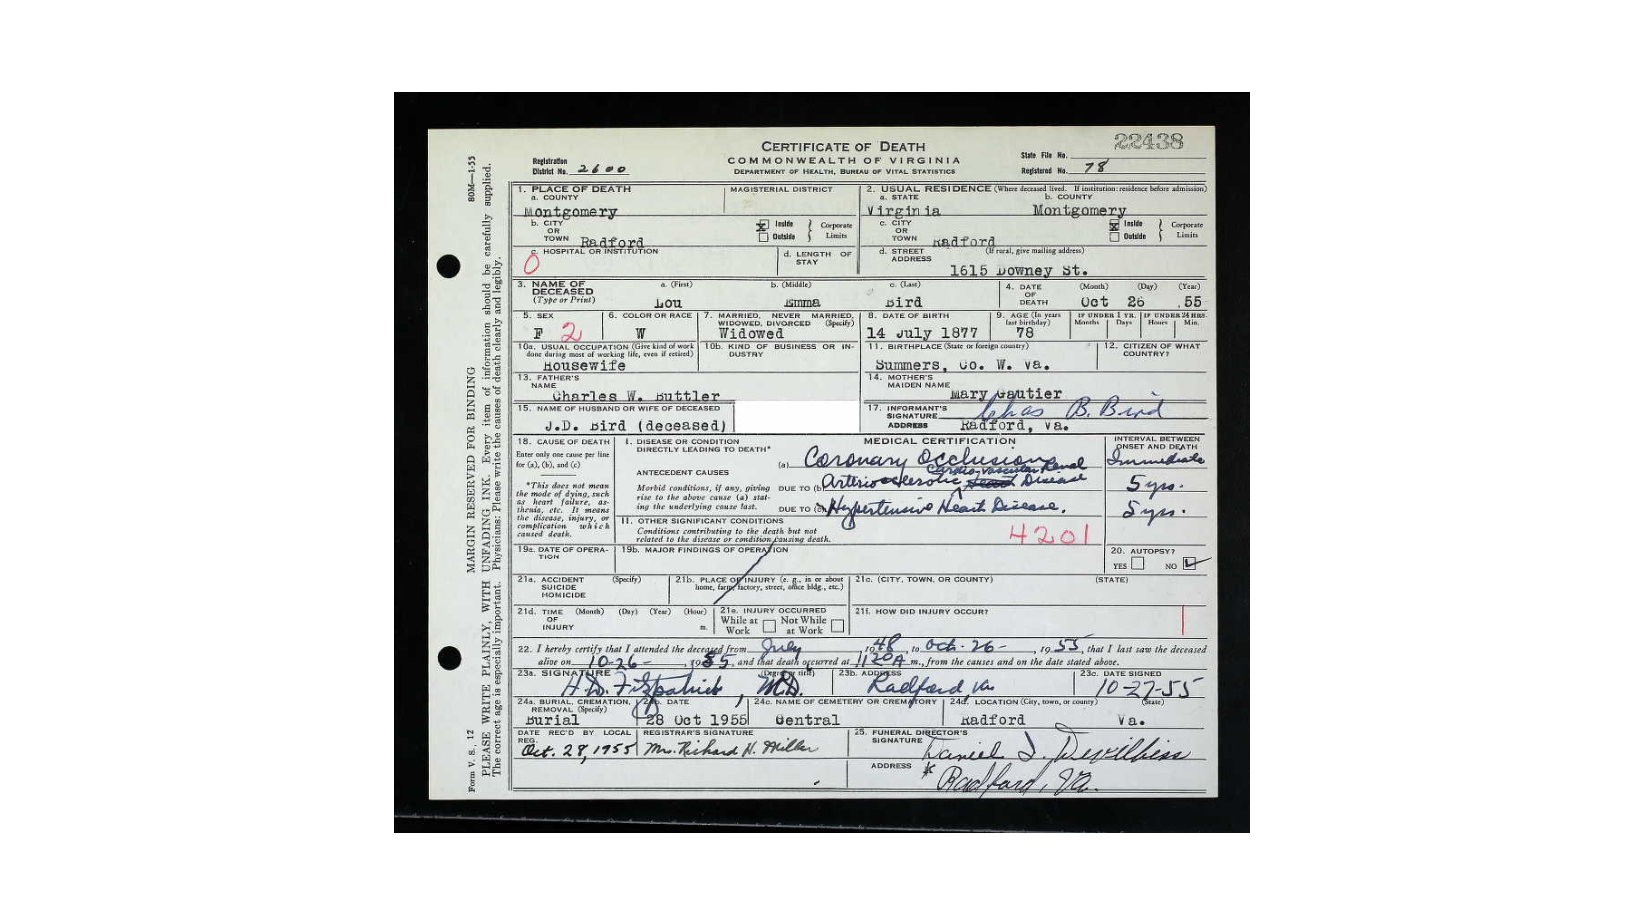 22438
CERTIFICATE OF DEATH
COMMONWEALTH OF VIRGINIA
DEPARTMENT OF HEALTH, BUREAU OF VITAL STATISTICS
Registration District No. 2600
State File No.
Registered No. 78
80M—1-55
MARGIN RESERVED FOR BINDING
Form V. S. 12
PLEASE WRITE PLAINLY, WITH UNFADING INK. Every item of information should be carefully supplied.
The correct age is especially important. Physicians: Please write the causes of death clearly and legibly.
1. PLACE OF DEATH
a. COUNTY
Montgomery
MAGISTERIAL DISTRICT
2. USUAL RESIDENCE (Where deceased lived. If institution: residence before admission)
a. STATE b. COUNTY
Virginia Montgomery
b. CITY OR TOWN Radford
Inside Outside Corporate Limits
c. CITY OR TOWN Radford
Inside Outside Corporate Limits
c. HOSPITAL OR INSTITUTION
0
d. LENGTH OF STAY
d. STREET ADDRESS (If rural, give mailing address)
1615 Downey St.
3. NAME OF DECEASED (Type or Print)
a. (First) b. (Middle) c. (Last)
Lou Emma Bird
4. DATE OF DEATH (Month) (Day) (Year)
Oct 26 55
5. SEX
F 2
6. COLOR OR RACE
W
7. MARRIED, NEVER MARRIED, WIDOWED, DIVORCED (Specify)
Widowed
8. DATE OF BIRTH
14 July 1877
9. AGE (In years last birthday)
78
IF UNDER 1 YR. Months Days
IF UNDER 24 HRS. Hours Min.
10a. USUAL OCCUPATION (Give kind of work done during most of working life, even if retired)
Housewife
10b. KIND OF BUSINESS OR INDUSTRY
11. BIRTHPLACE (State or foreign country)
Summers, Co. W. Va.
12. CITIZEN OF WHAT COUNTRY?
13. FATHER'S NAME
Charles W. Buttler
14. MOTHER'S MAIDEN NAME
Mary Gautier
15. NAME OF HUSBAND OR WIFE OF DECEASED
J.D. Bird (deceased)
17. INFORMANT'S SIGNATURE Chas B. Bird
ADDRESS Radford, Va.
18. CAUSE OF DEATH
Enter only one cause per line for (a), (b), and (c)
*This does not mean the mode of dying, such as heart failure, asthenia, etc. It means the disease, injury, or complication which caused death.
MEDICAL CERTIFICATION
INTERVAL BETWEEN ONSET AND DEATH
I. DISEASE OR CONDITION DIRECTLY LEADING TO DEATH*
(a) Coronary Occlusion Immediate
ANTECEDENT CAUSES
Morbid conditions, if any, giving rise to the above cause (a) stating the underlying cause last.
Cardio-vascular Renal
DUE TO (b) Arteriosclerotic Heart Disease 5 yrs.
DUE TO (c) Hypertensive Heart Disease. 5 yrs.
II. OTHER SIGNIFICANT CONDITIONS
Conditions contributing to the death but not related to the disease or condition causing death.
4201
19a. DATE OF OPERATION
19b. MAJOR FINDINGS OF OPERATION
20. AUTOPSY?
YES NO
21a. ACCIDENT SUICIDE HOMICIDE (Specify)
21b. PLACE OF INJURY (e. g., in or about home, farm, factory, street, office bldg., etc.)
21c. (CITY, TOWN, OR COUNTY) (STATE)
21d. TIME OF INJURY (Month) (Day) (Year) (Hour) m.
21e. INJURY OCCURRED
While at Work Not While at Work
21f. HOW DID INJURY OCCUR?
22. I hereby certify that I attended the deceased from July, 1948, to Oct-26-, 1955, that I last saw the deceased
alive on 10-26-, 1955, and that death occurred at 1120A m., from the causes and on the date stated above.
23a. SIGNATURE (Degree or title)
H.D. Fitzpatrick, M.D.
23b. ADDRESS
Radford, Va
23c. DATE SIGNED
10-27-55
24a. BURIAL, CREMATION, REMOVAL (Specify)
Burial
24b. DATE
28 Oct 1955
24c. NAME OF CEMETERY OR CREMATORY
Central
24d. LOCATION (City, town, or county) (State)
Radford Va.
DATE REC'D BY LOCAL REG.
Oct. 28, 1955
REGISTRAR'S SIGNATURE
Mrs. Richard H. Miller
25. FUNERAL DIRECTOR'S SIGNATURE
Daniel J. Devilbiss
ADDRESS
Radford, Va.